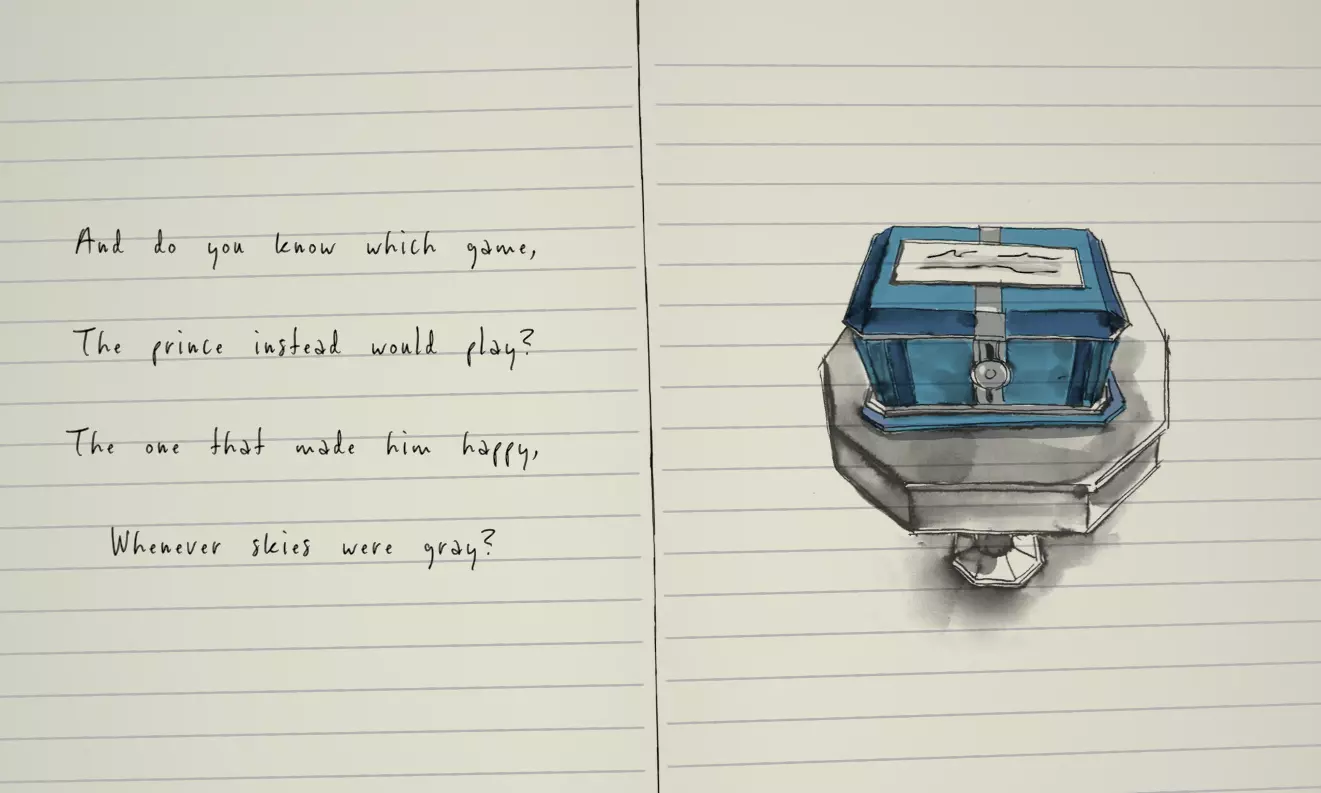 And do you know which game,
The prince instead would play?
The one that made him happy,
Whenever skies were gray?